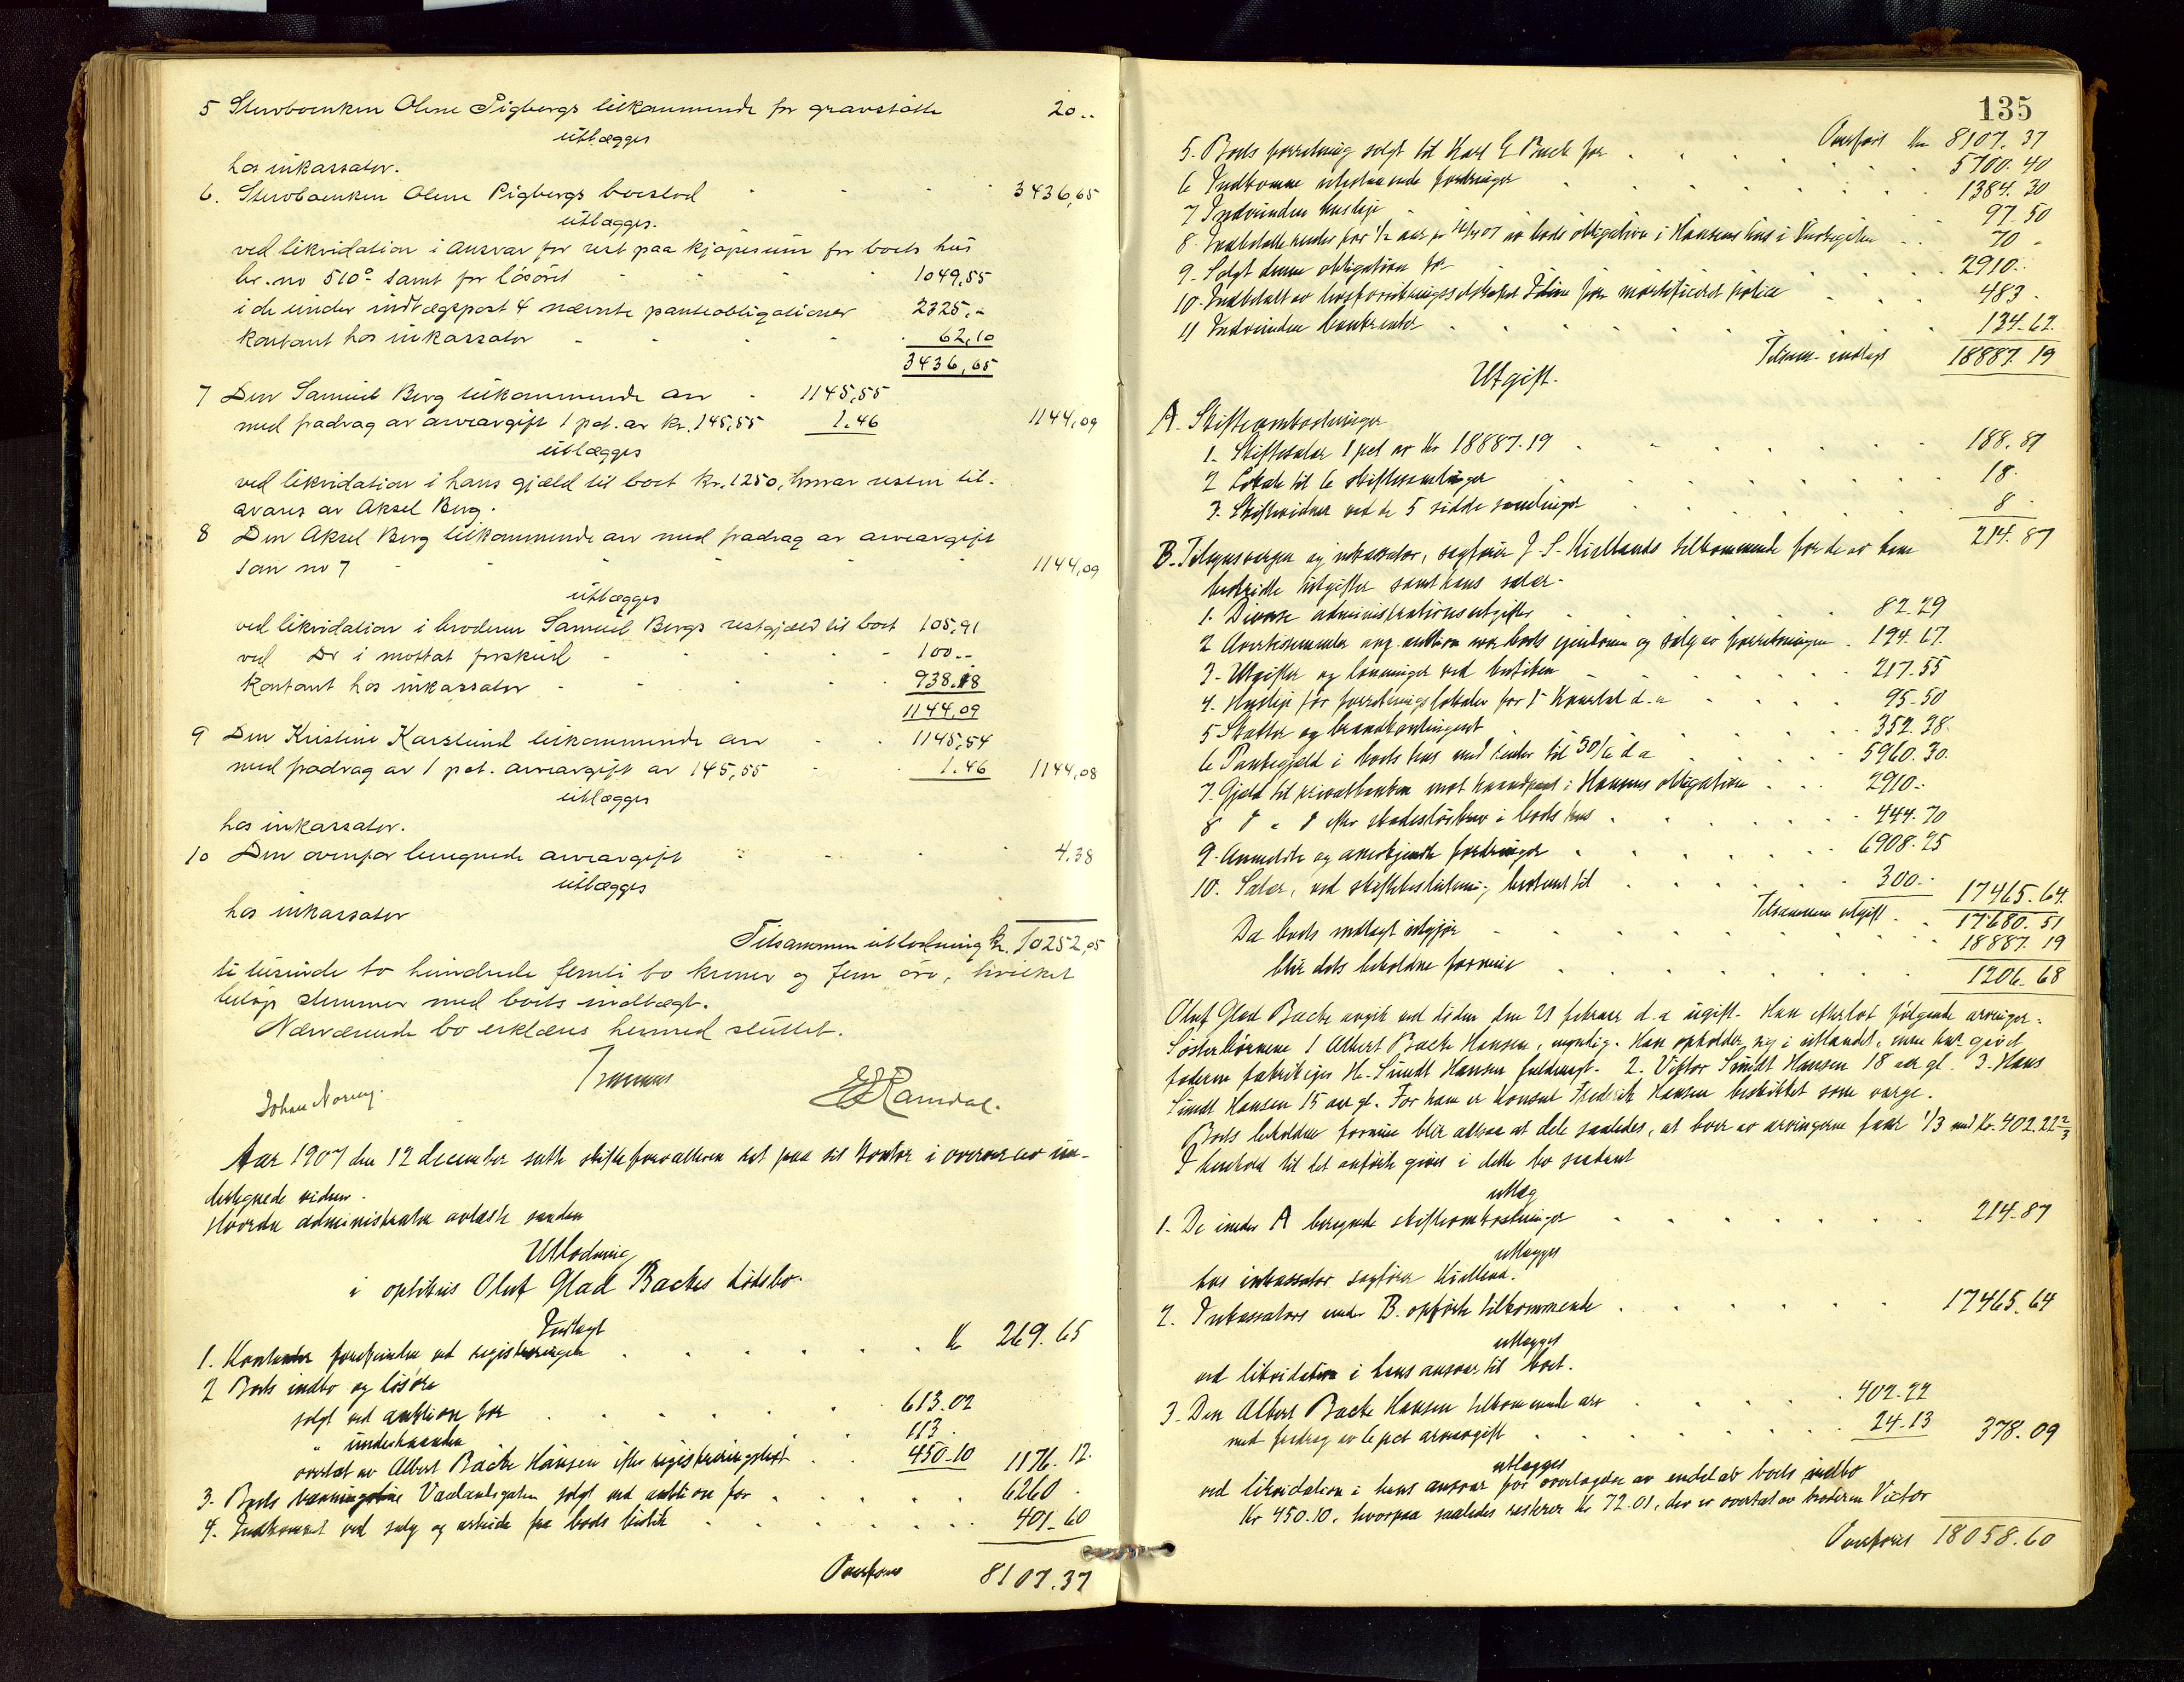 5 Stervboenken Olene Sigbergs tilkommende for gravstätte 20..
utlægges
hos inkassator.
6. Stervboenken Olene Sigbergs boeslod 3436,65
utlægges.
ved likvidation i ansvar for rest paa kjøpesum for boets hus
br. no 510ª samt for løsöret 1049,55
i de under indtægtspost 4 nævnte panteobligationer 2325.-
kontant hos inkassator 62,10
3436,65
7 Den Samuel Berg tilkommende arv 1145,55
med fradrag av arveavgift 1 pct. av kr. 145,55 1.46 1144,09
utlægges
ved likvidation i hans gjæld til boet kr. 1250, hvorav resten til-
svares av Aksel Berg.
8 Den Aksel Berg tilkommende arv med fradrag av arveavgift
som no 7 1144,09
utlægges
ved likvidation i broderen Samuel Bergs restgjæld til boet 105,91
ved Do i mottat forskud 100.-
Kontant hos inkassator 938.18
1144,09
9 Den Kristine Karslund tilkommende arv 1145,54
med fradrag av 1 pct. arveavgift av 145,55 1.46 1144,08
utlægges
hos inkassator.
10 Den ovenfor beregnede arveavgift 4.38
utlægges
hos inkassator
Tilsammen utlodning kr. 10252,05
ti tusinde to hundrede femti to kroner og fem øre, hvilket
beløp stemmer med boets indtægt.
Nærværende bo erklæres hermed sluttet.
Johan Noreng.
Ramdal.
Aar 1907 den 12 december satte skifteforvalteren ret paa sit kontor i overvær av un-
dertegnede vidner.
Hvorda administrator avlaste saadan
Utlodning
i optikus Oluf Glad Backes dødsbo.
Indtægt
1. Kontanter forefunden ved registreringen Kr 269.65
2 Boets indbo og løsøre
solgt ved auktion for 613.02
" underhaanden 113.
overtat av Albert Backe Hansen efter registreringstakst 450.10 1176.12.
3. Boets Vaalandsgaten solgt ved auktion for 6260.
4. Indkommet ved salg og arbeide fra boets butik 401.60
Overføres 8107.37
135
Overført Kr 8107.37
5. Boets forretning solgt til Karl G Back for 5700.40
6 Indkomne utestaaende fordringer 1384.30
7 Indvunden husleje 97.50
8. Indbetalte renter for ½ aar av boets obligation i Hansens hus i 70 -
9. Solgt denne obligation for 2910..
10. Indbetalt av livsforsikringsselskabet Idun for mortificeret police 483.
11 Indvundne bankrenter 134.62.
Tilsam. indtægt 18887.19
Utgift.
A. Skifteomkostninger
1. Skiftesalær 1 pct av Kr 18887.19 188.87
2 Lokale til 6 skiftesamlinger 18.
3. Skiftevidner ved de 5 sidste samlinger 8.
214.87
B. Tilsynsverger og inkassator, sagfører J. S. Kiellands tilkommende for de av ham
bestridte utgifter samt hans salær.
1. Diverse administrationsutgifter 82.29
2 Avertissementer ang. auktion over boets eiendom og salg av forretningen 194.67.
3. Utgifter og lønninger ved butiken 217.55
4. Husleje for forretningslokaler for 1' kvartal d.a 95.50
5 Skatter og brandkontingent 352.38.
6 Pantegjæld i boets hus med renter til 30/6 d a 5960.30.
7. Gjæld til privatbanken mot haandpant i Hansens obligation 2910.-
8 " " " efter skadesløsbrev i boets hus 444.70
9. Anmeldte og anerkjendte fordringer 6908.25
10. Salær, ved skiftebeslutning bestemt til 300.- 17465.64.
Tilsammen utgift 17680.51
Da boets indtægt utgjør 18887.19
blir dets beholdne formue 1206.68
Oluf Glad Backe avgik ved døden den 21 februar d.a ugift. Han efterlot følgende arvinger:
Søsterbørnene 1 Albert Backe Hansen, myndig. Han opholder sig i utlandet, men har givet
faderen fabrikejer H. Sundt Hansen fuldmagt. 2. Viktor Sundt Hansen 18 aar gl. 3. Hans
Sundt Hansen 15 aar gl. For ham er konsul Frederik Hansen beskikket som værge.
Boets beholdne formue blir altsaa at dele saaledes, at hver av arvingerne faar 1/3 med Kr. 402.22 2/3
I henhold til det anførte gives i dette bo saadant
utlæg
1. De under A beregnede skifteomkostninger 214.87
utlægges
hos inkassator sagfører Kielland.
2. Inkassators under B. opførte tilkommende 17465.64
utlægges
ved likvidation i hans ansvar til boet.
3. Den Albert Backe Hansen tilkommende arv 402.22
med fradrag av 6 pct arveavgift 24.13 378.09
utlægges
ved likvidation i hans ansvar for overtagelse av endel av boets indbo
Kr 450.10, hvorpaa saaledes resterer Kr 72.01, der er overtat av broderen Victor
Overføres 18058.60